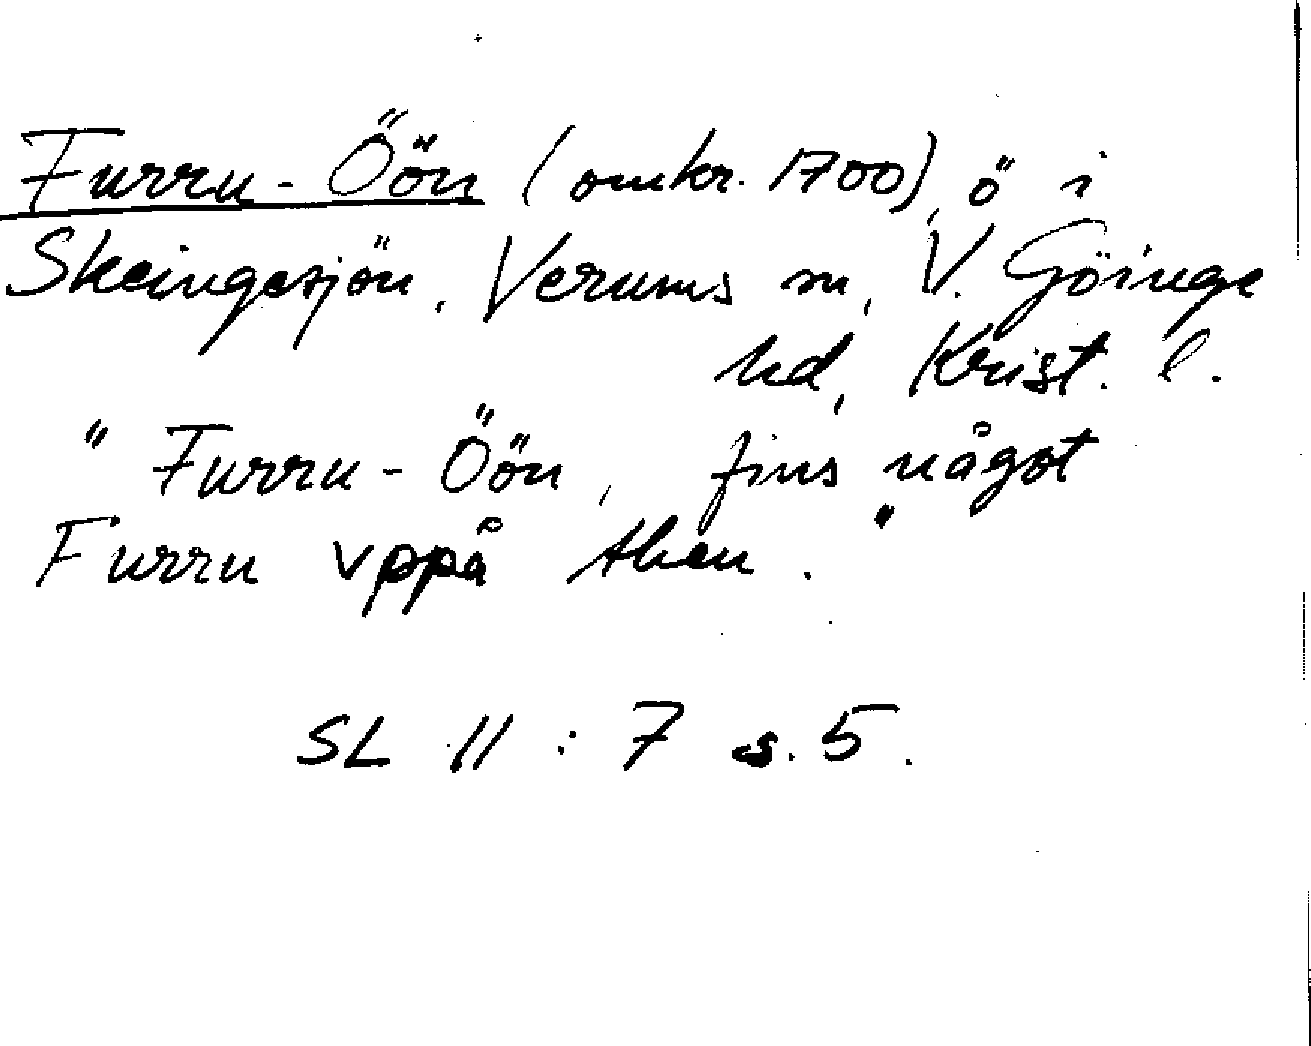 Furru-Öön (omkr. 1700), ö i
Skeingesjön, Verums sn, V. Göinge
hd, Krist. l.
" Furru-Öön, fins något
Furru vppå then."
SL 11:7 s. 5.